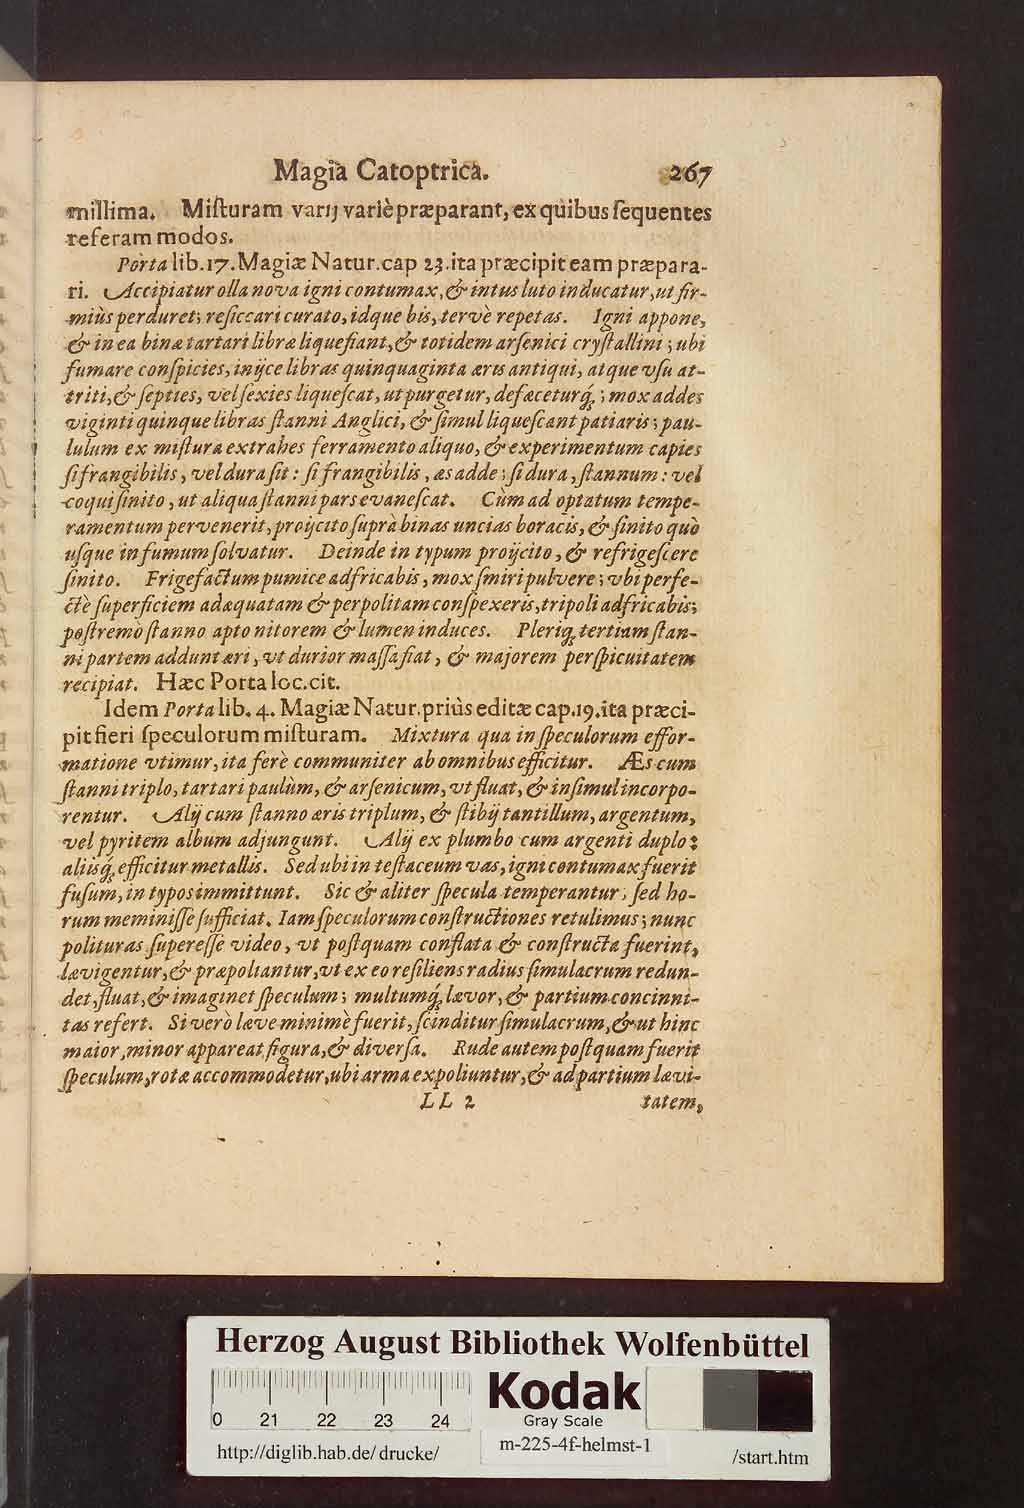 Magia Catoptrica. 267
millima. Miſturam varij variè præparant, ex quibus ſequentes
referam modos.
Porta lib. 17. Magiæ Natur. cap 23. ita præcipit eam præpara-
ri. Accipiatur olla nova igni contumax, & intus luto inducatur, ut fir-
miùs perduret; reſiccari curato, idque bis, tervè repetas. Igni appone,
& in ea binæ tartari libræ liquefiant, & totidem arſenici cryſtallini; ubi
fumare conſpicies, inijce libras quinquaginta æris antiqui, atque vſu at-
triti, & ſepties, vel ſexies liqueſcat, ut purgetur, defæceturq́;; mox addes
viginti quinque libras ſtanni Anglici, & ſimul liqueſcant patiaris; pau-
lulum ex miſtura extrahes ferramento aliquo, & experimentum capies
ſi frangibilis, vel dura ſit: ſi frangibilis, æs adde; ſi dura, ſtannum: vel
coqui ſinito, ut aliqua ſtanni pars evaneſcat. Cùm ad optatum tempe-
ramentum pervenerit, proijcito ſuprà binas uncias boracis, & ſinito quò
uſque in fumum ſolvatur. Deinde in typum proijcito, & refrigeſcere
ſinito. Frigefactum pumice adfricabis, mox ſmiri pulvere; vbi perfe-
ctè ſuperficiem adæquatam & perpolitam conſpexeris, tripoli adfricabis;
poſtremò ſtanno apto nitorem & lumen induces. Pleriq; tertiam ſtan-
ni partem addunt æri, vt durior maſſa fiat, & majorem perſpicuitatem
recipiat. Hæc Porta loc. cit.
Idem Porta lib. 4. Magiæ Natur. priùs editæ cap. 19. ita præci-
pit fieri ſpeculorum miſturam. Mixtura qua in ſpeculorum effor-
matione vtimur, ita ferè communiter ab omnibus efficitur. Æs cum
ſtanni triplo, tartari paulùm, & arſenicum, vt fluat, & inſimul incorpo-
rentur. Alij cum ſtanno æris triplum, & ſtibij tantillum, argentum,
vel pyritem album adjungunt. Alij ex plumbo cum argenti duplo:
aliisq́; efficitur metallis. Sed ubi in teſtaceum vas, igni contumax fuerit
fuſum, in typos immittunt. Sic & aliter ſpecula temperantur, ſed ho-
rum meminiſſe ſufficiat. Iam ſpeculorum conſtructiones retulimus; nunc
polituras ſupereſſe video, vt poſtquam conflata & conſtructa fuerint,
lævigentur, & præpoliantur, vt ex eo reſiliens radius ſimulacrum redun-
det, fluat, & imaginet ſpeculum; multumq́; lævor, & partium concinni-
tas refert. Si verò læve minimè fuerit, ſcinditur ſimulacrum, & ut hinc
maior, minor appareat figura, & diverſa. Rude autem poſtquam fuerit
ſpeculum, rotæ accommodetur, ubi arma expoliuntur, & ad partium lævi-
LL 2 tatem,
Herzog August Bibliothek Wolfenbüttel
0 21 22 23 24
Kodak
Gray Scale
http://diglib.hab.de/ drucke/
m-225-4f-helmst-1
/start.htm